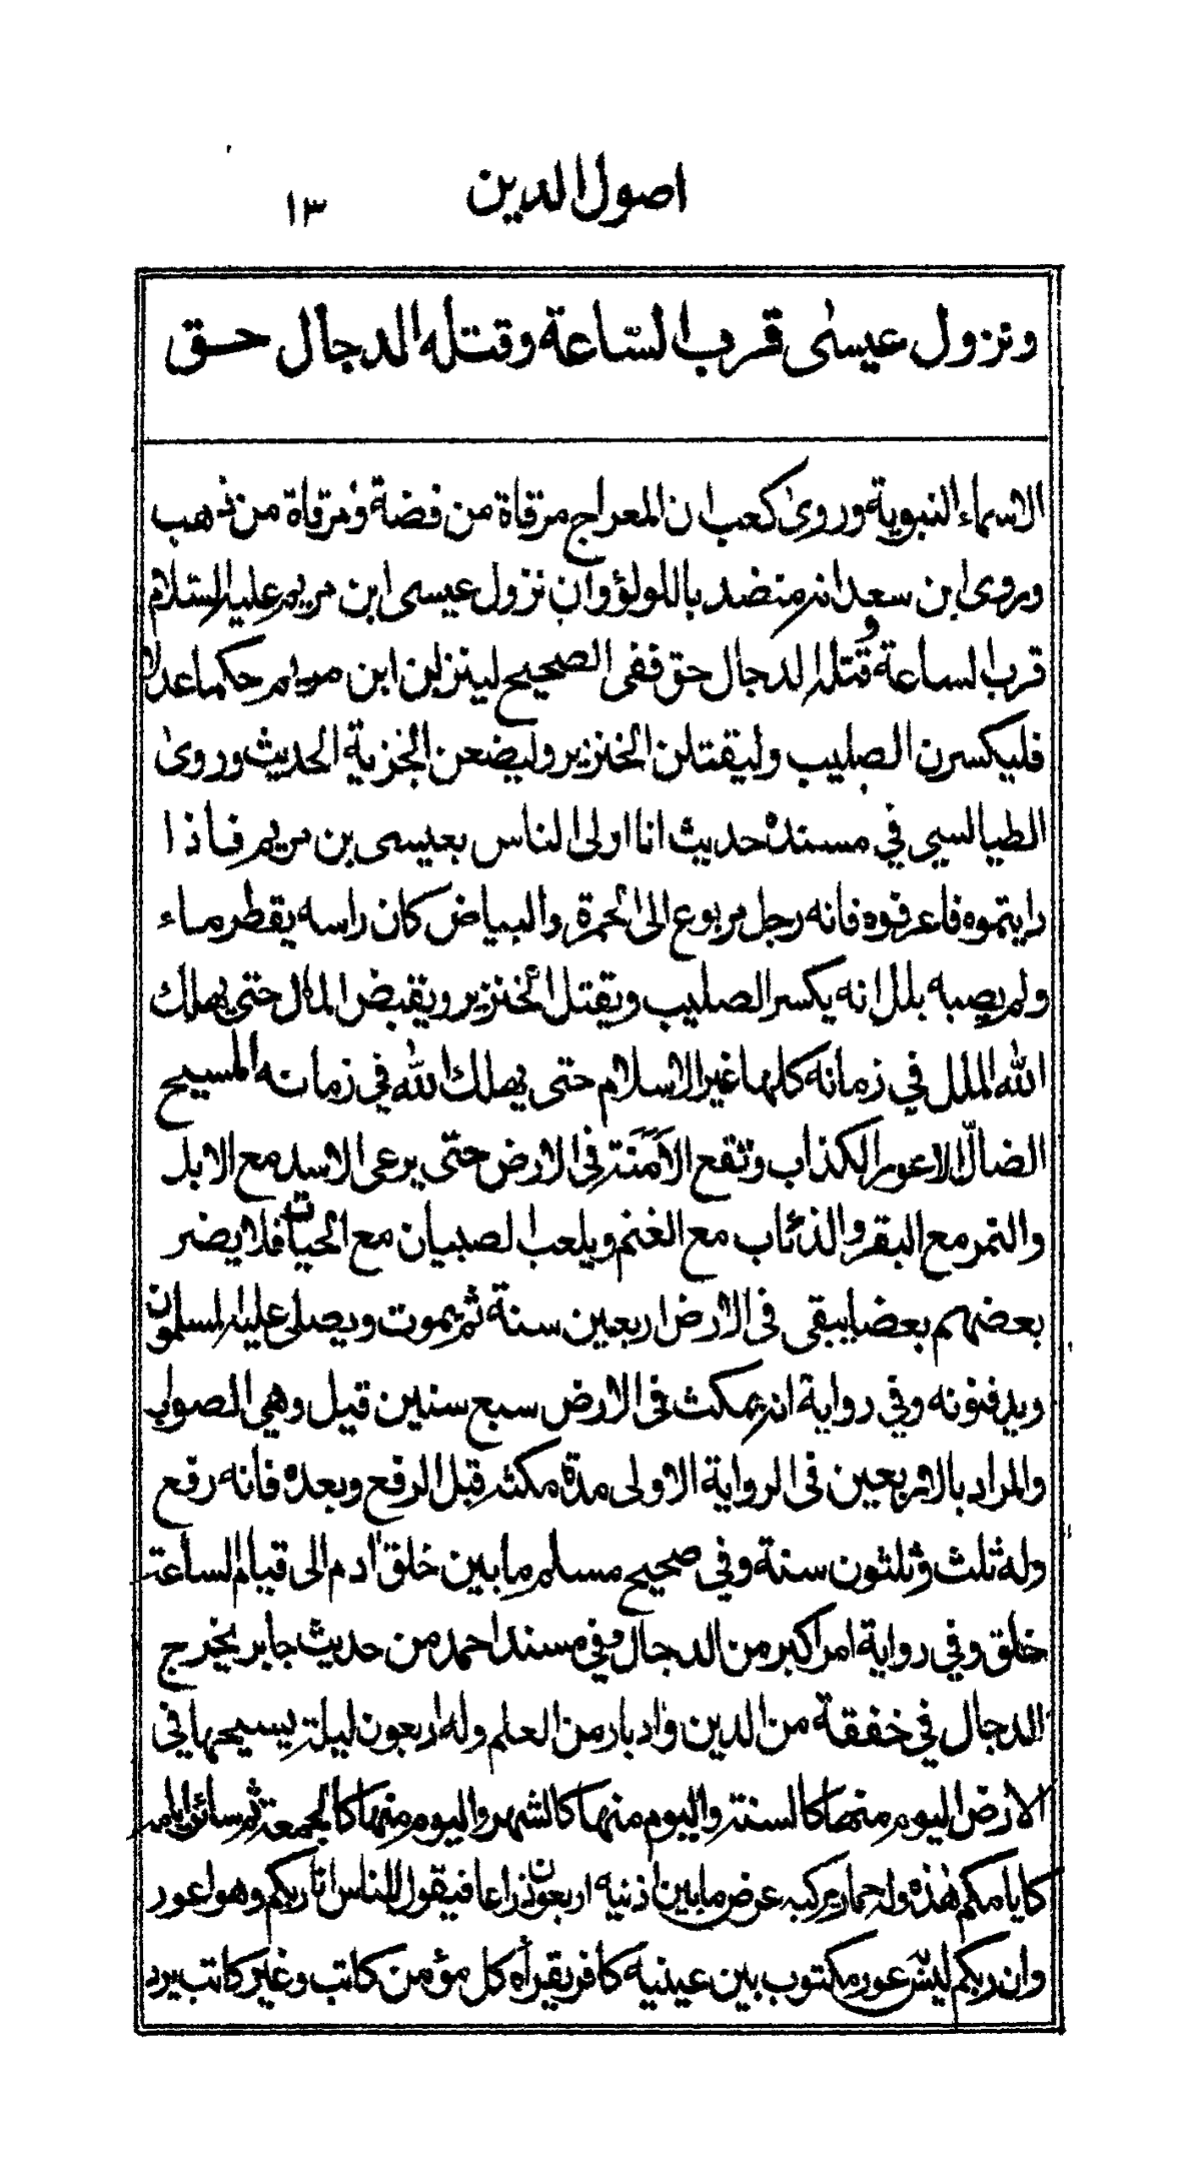 اصول الدين
١٣
ونزول عيسى قرب السّاعة وقتله الدجال حق
الاسماء النبوية وروى كعب ان المعراج مرقاة من فضة ومرقاة من ذهب
وروى ابن سعد انه منضد باللولؤ وان نزول عيسى ابن مريم عليه السلام
قرب الساعة وقتله الدجال حق ففى الصحيح لينزلن ابن مريم حكما عدلا
فليكسرن الصليب وليقتلن الخنزير وليضعن الجزية الحديث وروى
الطيالسي في مسنده حديث انا اولى الناس بعيسى بن مريم فاذا
رايتموه فاعرفوه فانه رجل مربوع الى الحمرة والبياض كان راسه يقطر ماء
ولم يصبه بلل انه يكسر الصليب ويقتل الخنزير ويقبض المال حتى يهلك
الله الملل في زمانه كلها غير الاسلام حتى يهلك الله في زمانه المسيح
الضالّ الاعور الكذاب وتقع الاَمَنَة فى الارض حتّى يرعى الاسد مع الابل
والنمر مع البقر والذئاب مع الغنم ويلعب الصبيان مع الحيات فلا يضر
بعضهم بعضا يبقى فى الارض اربعين سنة ثم يموت ويصلى عليه المسلمون
ويدفنونه وفي رواية انه يمكث فى الارض سبع سنين قيل وهي الصواب
والمراد بالاربعين فى الرواية الاولى مدة مكثه قبل الرفع وبعده فانه رفع
وله ثلث وثلثون سنة وفي صحيح مسلم ما بين خلق ادم الى قيام الساعة
خلق وفي رواية امر اكبر من الدجال وفي مسند احمد من حديث جابر يخرج
الدجال في خفقة من الدين وادبار من العلم وله اربعون ليلة يسيحها في
الارض اليوم منها كالسنة واليوم منها كالشهر واليوم منها كالجمعة ثم سائر ايامه
كايامكم هذه وله حمار يركبه عرض ما بين اذنيه اربعون ذراعا فيقول للناس انا ربكم وهو اعور
وان ربكم ليس عور مكتوب بين عينيه كافر يقرأه كل مؤمن كاتب وغير كاتب يرد